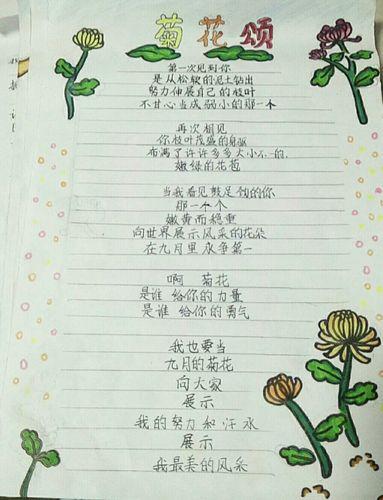 菊花颂
第一次见到你
是从松软的泥土钻出
努力伸展自己的枝叶
不甘心当成弱小的那一个
再次相见
你枝叶茂盛的身躯
布满了许许多多大小不一的
嫩绿的花苞
当我看见鼓足劲的你
那一个个
嫩黄而稳重
向世界展示风采的花朵
在九月里永争第一
啊 菊花
是谁 给你的力量
是谁 给你的勇气
我也要当
九月的菊花
向大家
展示
我的努力和汗水
展示
我最美的风采